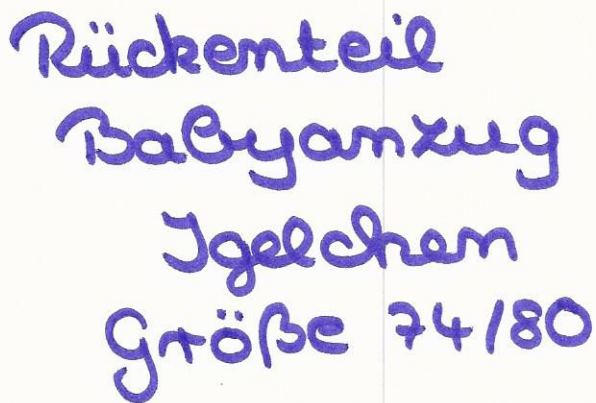 Rückenteil
Babyanzug
Igelchen
Größe 74/80